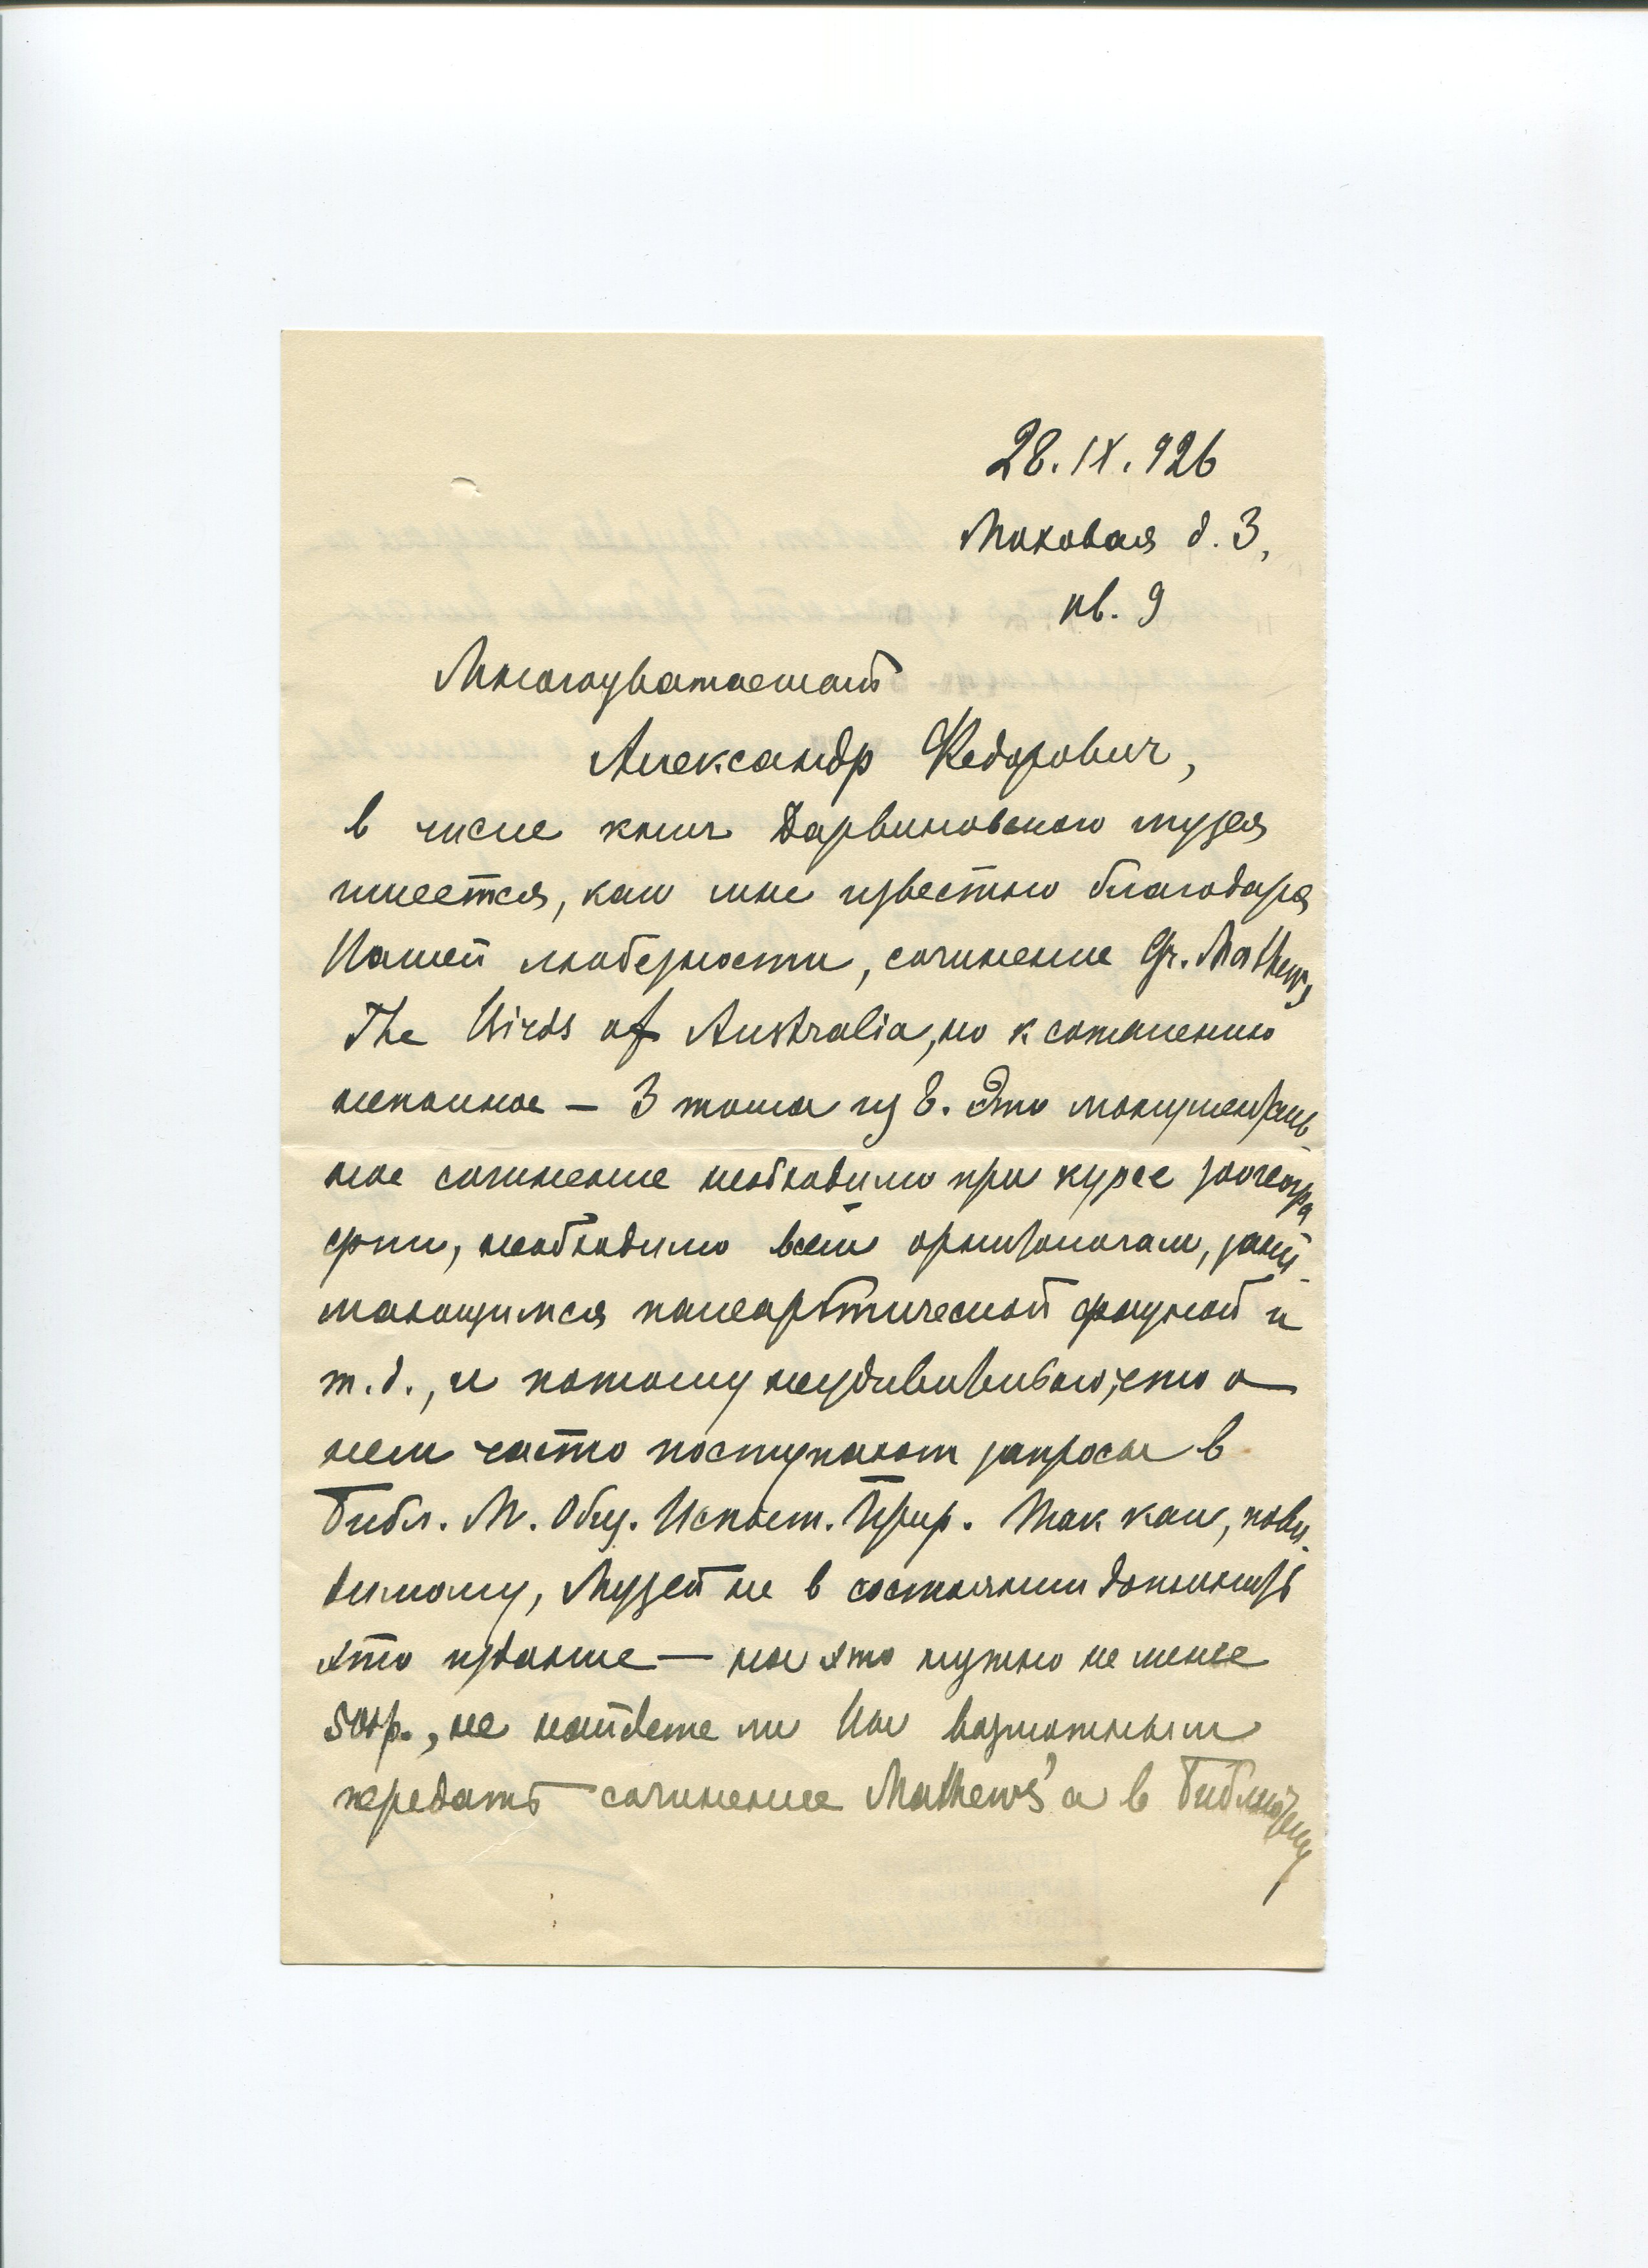 28.IX.926
Моховая д. 3,
кв. 9
Многоуважаемый
Александр Федорович,
в числе книг Дарвиновского музея
имеется, как мне известно благодаря
Вашей любезности, сочинение Gr. Mathews,
The Birds of Australia, но к сожалению
неполное – 3 тома из 8. Это монументаль-
ное сочинение необходимо при курсе зоогеогра
фии, необходимо всем орнитологам, зани-
мающимся палеарктической фауной и
т.д., и потому неудивительно, что о
нем часто поступают запросы в
Библ. М. Общ. Испыт. Прир. Так как, пови-
димому, Музей не в состоянии дополнить
это издание — на это нужно не менее
500 р., не найдете ли Вы возможным
передать сочинение Mathews'а в Библиотеку